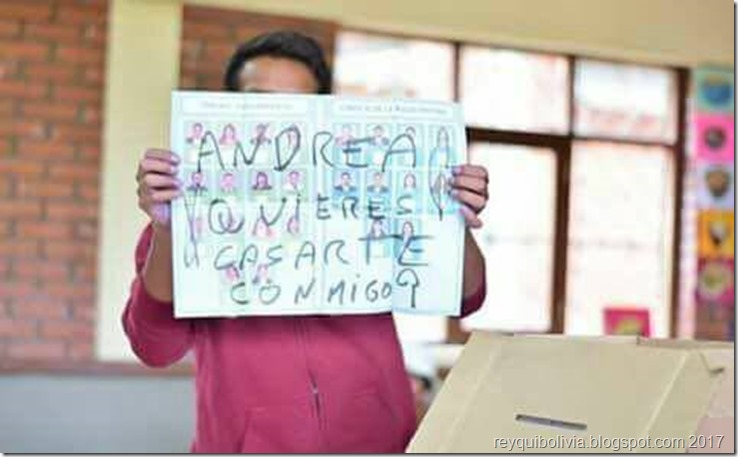 ANDREA
¿QUIERES
CASARTE
CONMIGO?
reyquibolivia.blogspot.com 2017